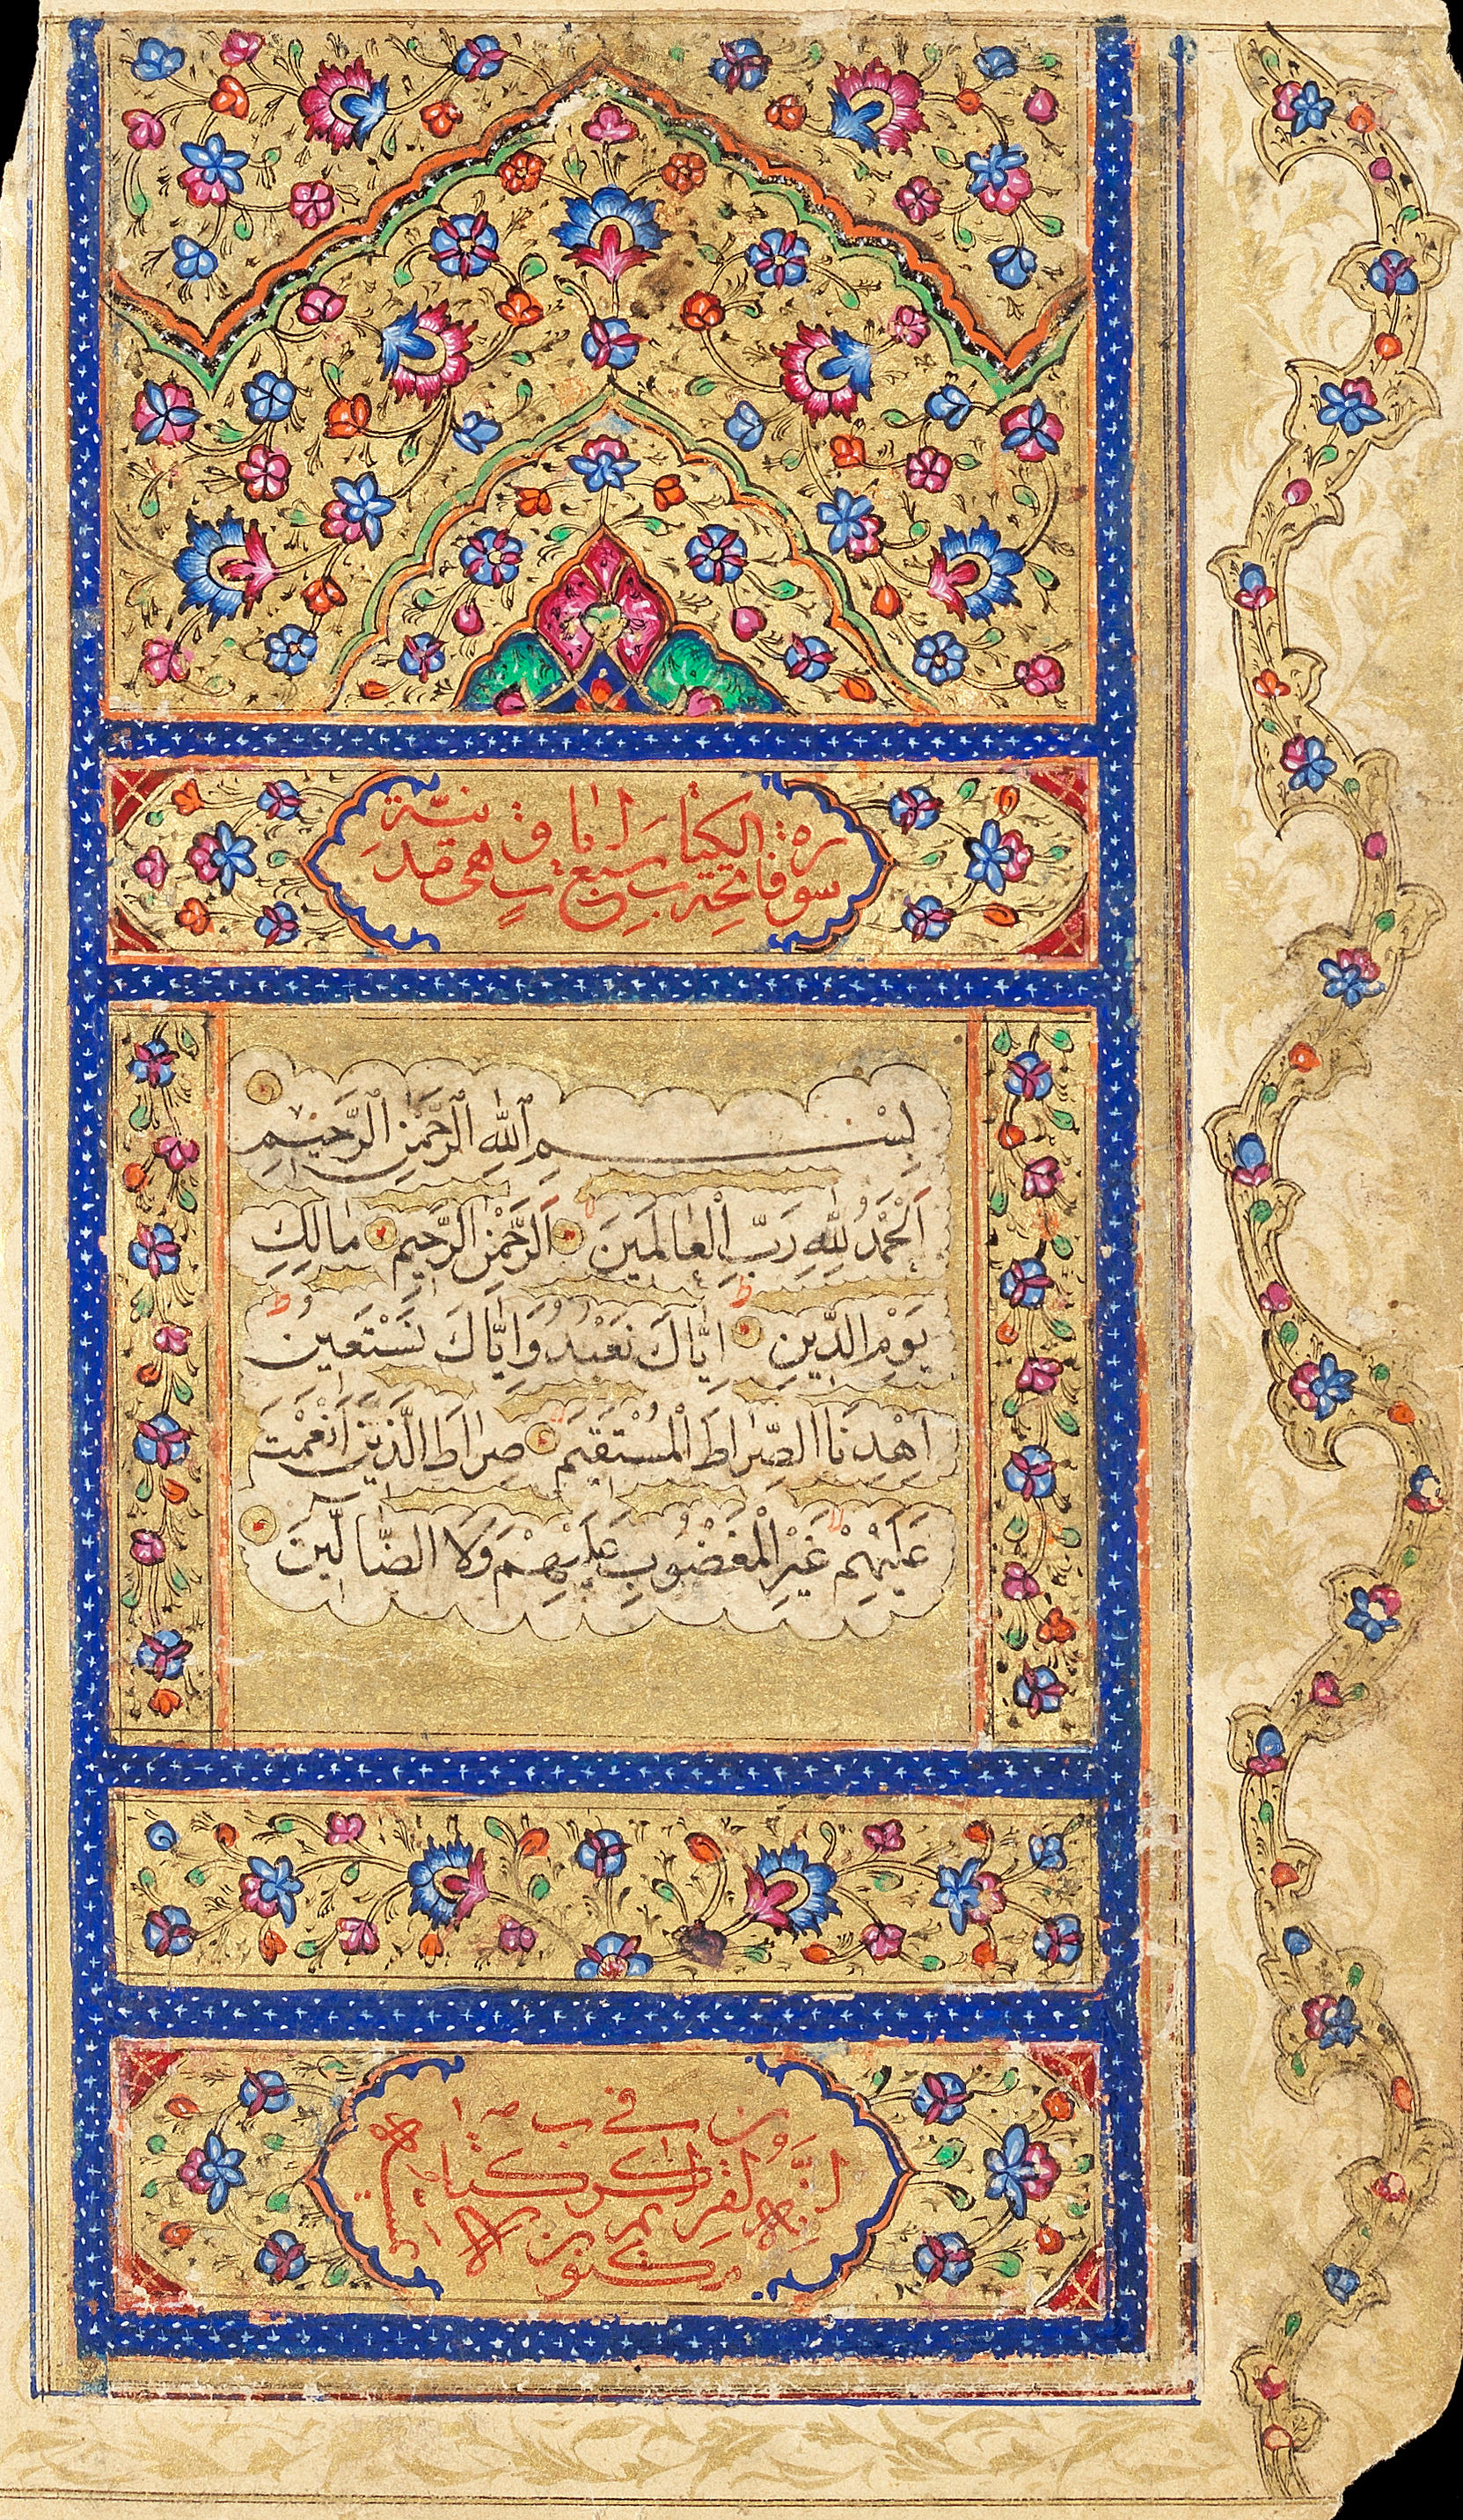 سورة فاتحة الكتاب سبع اٰيات وهي مدنية
بِسْمِ ٱللّٰهِ ٱلرَّحْمٰنِ ٱلرَّحِيمِ
اَلْحَمْدُ لِلّٰهِ رَبِّ الْعَالَمِينَ اَلرَّحْمٰنِ الرَّحِيمِ مَالِكِ
يَوْمِ الدِّينِ اِيَّاكَ نَعْبُدُ وَاِيَّاكَ نَسْتَعِينُ
اِهْدِنَا الصِّرَاطَ الْمُسْتَقِيمَ صِرَاطَ الَّذِينَ اَنْعَمْتَ
عَلَيْهِمْ غَيْرِ الْمَغْضُوبِ عَلَيْهِمْ وَلَا الضَّالِّينَ
انه لقران كريم في كتاب مكنون لا